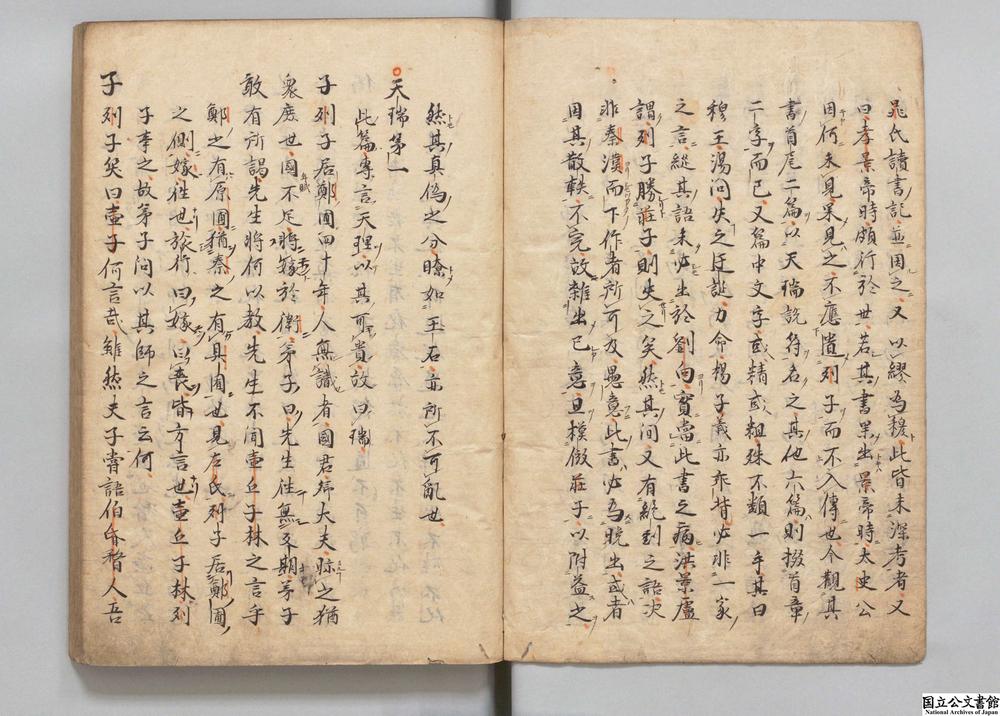 晁氏讀書記並因之又以繆為穆此皆未深考者又
曰孝景帝時頗行於世若其書果出景帝時太史公
因何未見果見之不應遺列子而不入傳也今觀其
書首尾二篇以天瑞說符名之其他六篇則掇首章
二字而已又篇中文字或精或粗殊不類一手其曰
穆王湯問失之迂誕力命楊子義亦乖背必非一家
之言縱其語未必出於劉向實當此書之病洪景盧
謂列子勝莊子則失之矣然其間又有絕到之語決
非秦漢而下作者所可及愚意此書必為晚出或者
因其散軼不完故雜出己意且模倣莊子以附益之
然其真偽之分瞭如玉石亦所不可亂也
天瑞第一
此篇專言天理以其可貴故曰瑞
子列子居鄭圃四十年人無識者國君卿大夫眎之猶
衆庶也國不足將嫁於衛弟子曰先生往無反期弟子
年飢
敢有所謁先生將何以教先生不聞壺丘子林之言乎
鄭之有原圃猶秦之有具囿也見左氏列子居鄭圃
之側嫁往也旅行曰嫁曰喪皆方言也壺丘子林列
子事之故弟子問以其師之言云何
子列子笑曰壺子何言哉雖然夫子嘗語伯昏瞀人吾
国立公文書館
National Archives of Japan